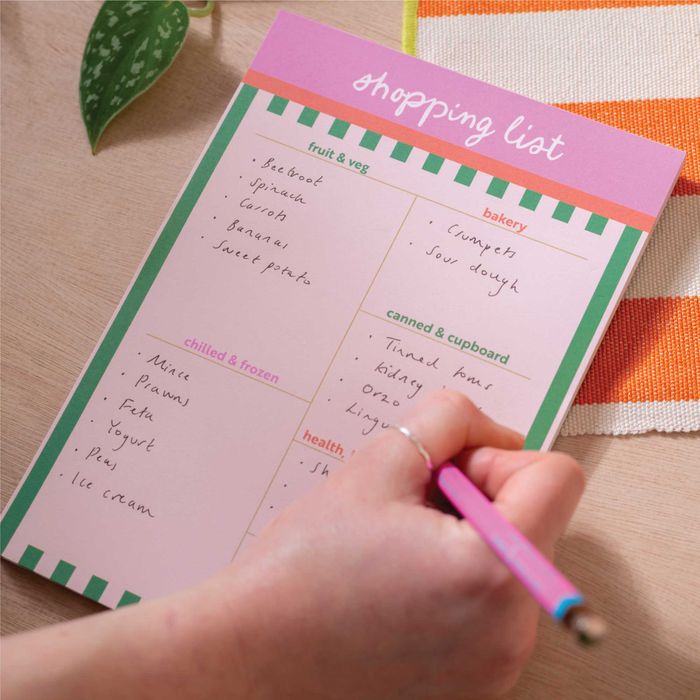 shopping list
fruit & veg
• Beetroot
• Spinach
• Carrots
• Bananas
• Sweet potato
bakery
• Crumpets
• Sour dough
chilled & frozen
• Mince
• Prawns
• Feta
• Yogurt
• Peas
• Ice cream
canned & cupboard
• Tinned toms
• Kidney
• Orzo
• Lingu
health,
• Sh